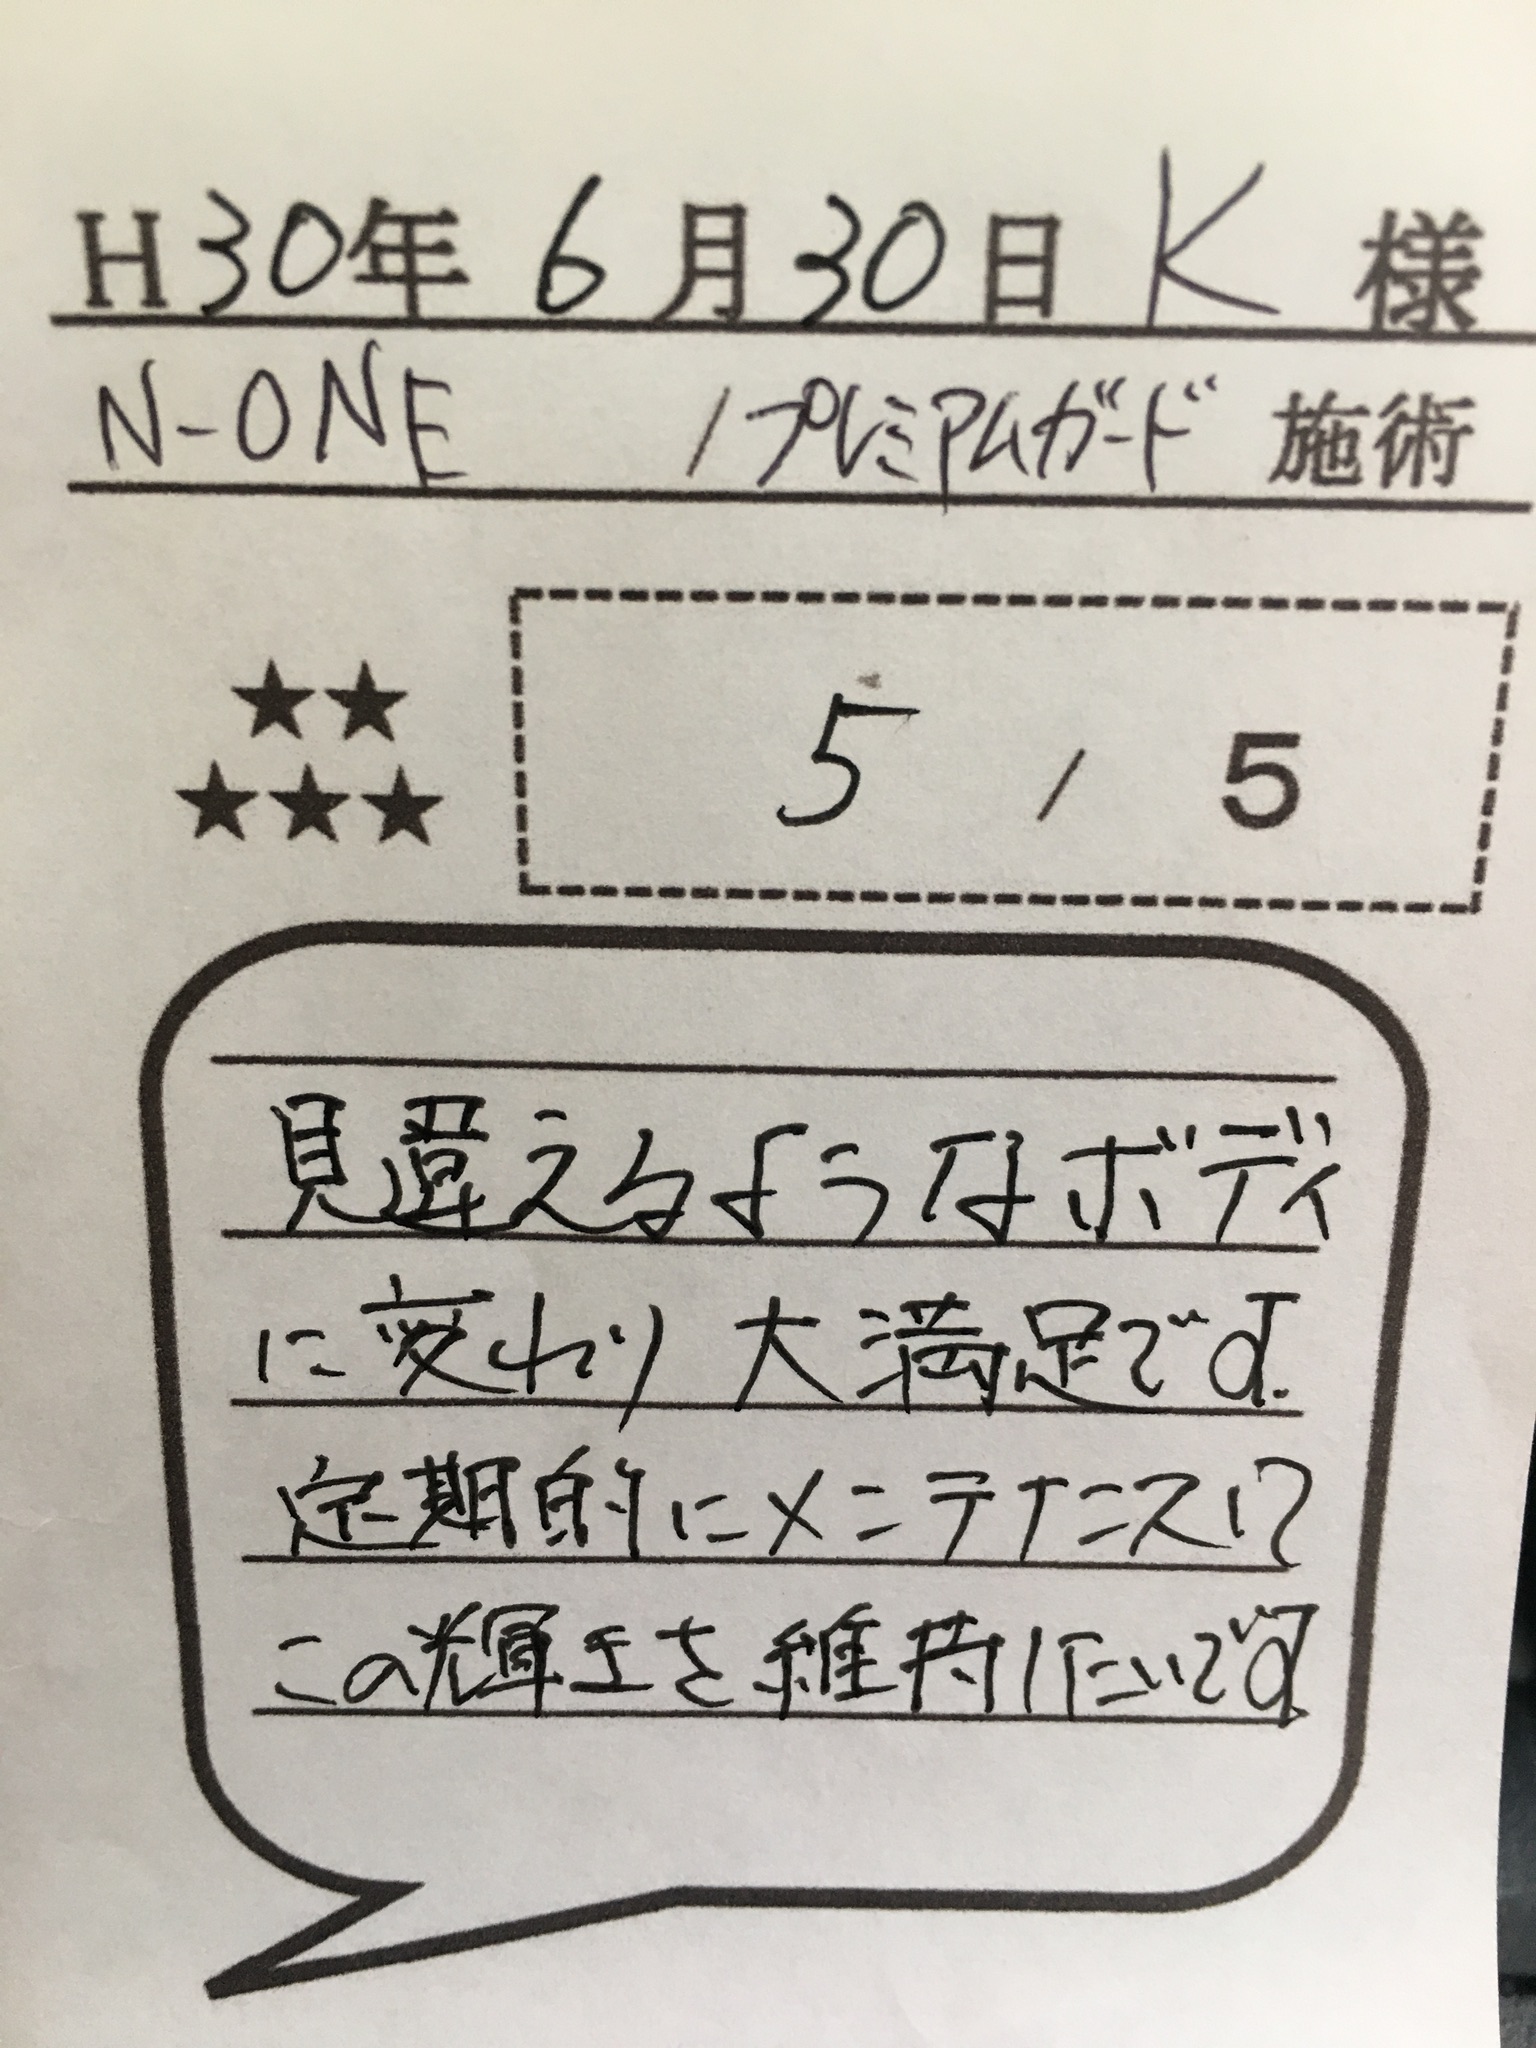 H30年 6月30日 K 様
N-ONE /プレミアムガード 施術
★★
★★★
5 / 5
見違えるようなボディ
に変わり大満足です.
定期的にメンテナンスして
この輝きを維持したいです